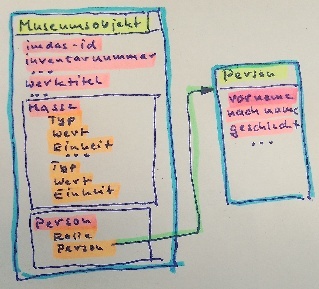 Museumsobjekt
imdas-id
inventarnummer
...
werktitel
...
Masse
Typ
Wert
Einheit
...
Typ
Wert
Einheit
Person
Rolle
Person
Person
vorname
nachname
geschlecht
...